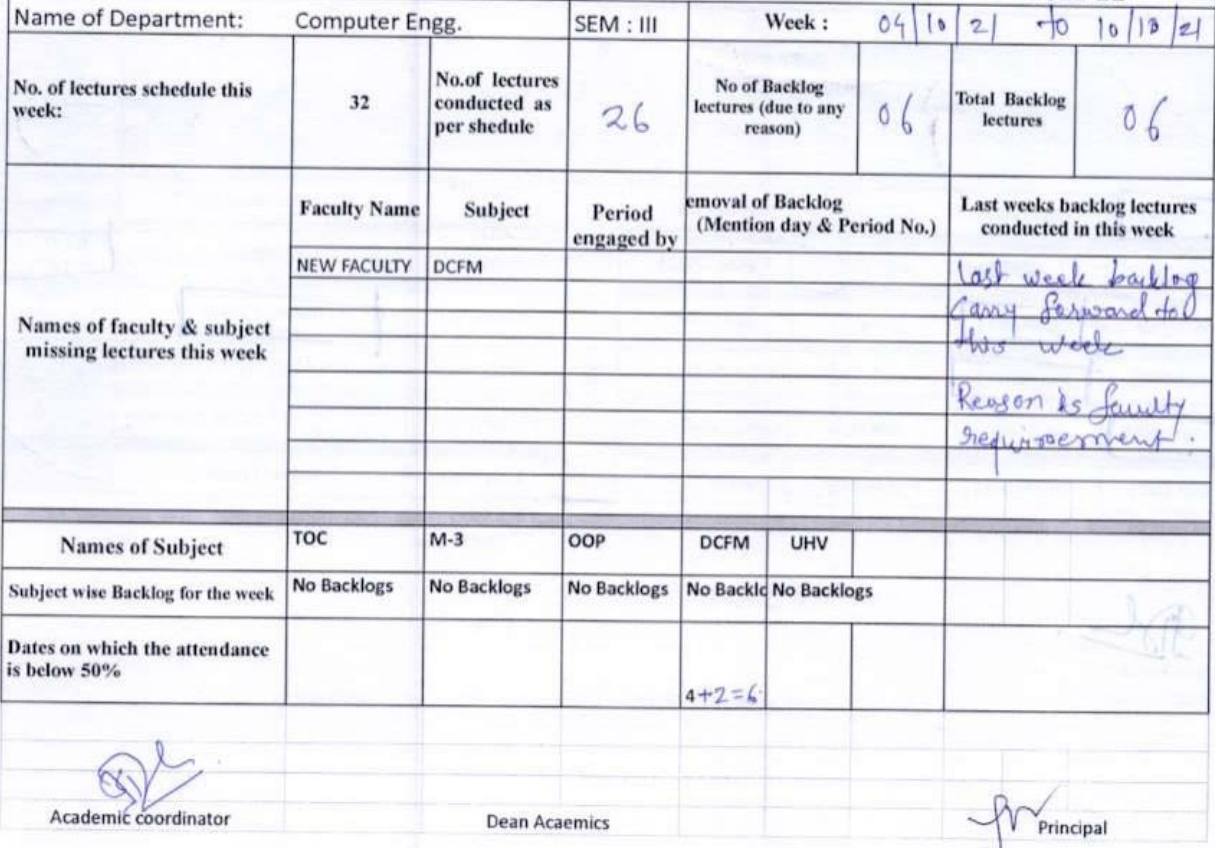 Name of Department: Computer Engg. SEM : III Week : 04/10/21 to 10/10/21
No. of lectures schedule this week: 32 No.of lectures conducted as per shedule 26 No of Backlog lectures (due to any reason) 06 Total Backlog lectures 06
Names of faculty & subject missing lectures this week
Faculty Name Subject Period engaged by emoval of Backlog (Mention day & Period No.) Last weeks backlog lectures conducted in this week
NEW FACULTY DCFM
Last week backlog
Carry forward to
this week
Reason is faculty
requirement.
Names of Subject TOC M-3 OOP DCFM UHV
Subject wise Backlog for the week No Backlogs No Backlogs No Backlogs No Backlc No Backlogs
Dates on which the attendance is below 50%
4+2=6
Academic coordinator Dean Acaemics Principal